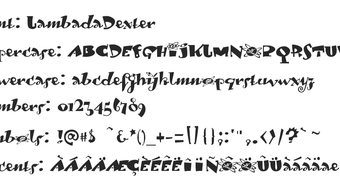 nt: LambadaDexter
percase: ABCDEFGHIJKLMNOPQRSTUV
wercase: abcdefghijklmnopqrstuvwxyz
mbers: 0123456789
mbols: !@#$ ~&*()_+-=[]{}:;"',.<>/? ` ~
cents: ÀÁÂÃÄÆÇÈÉÊËÌÍÑ ÖÙÜàáâãäæ